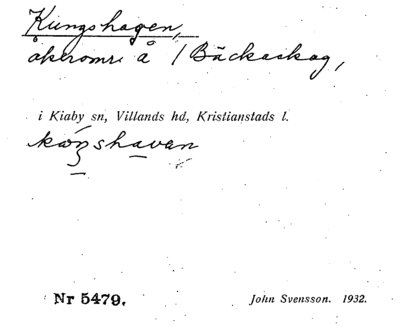 Kungshagen,
åkeromr. å / Bäckaskog,
i Kiaby sn, Villands hd, Kristianstads l.
Nr 5479.
John Svensson. 1932.